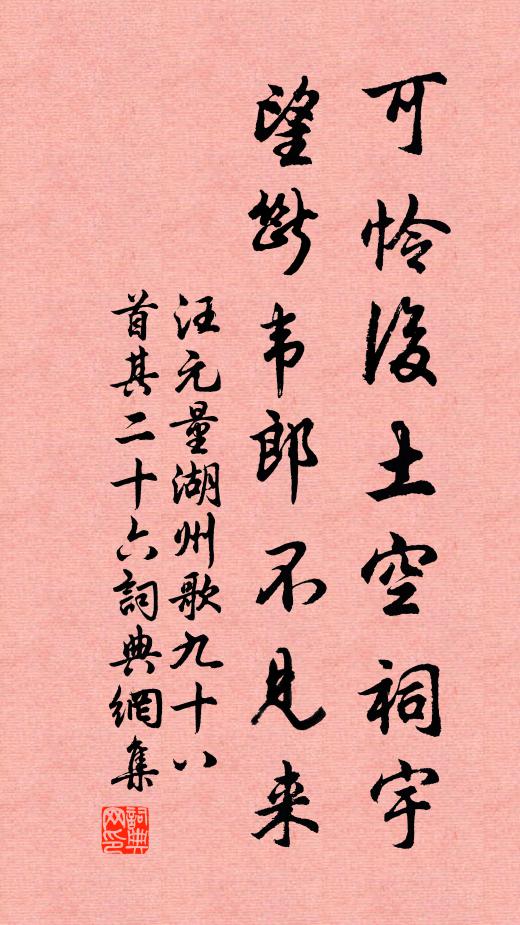 可怜后土空祠宇
望断韦郎不见来
汪元量湖州歌九十八
首其二十六詞典網集
詞典网印